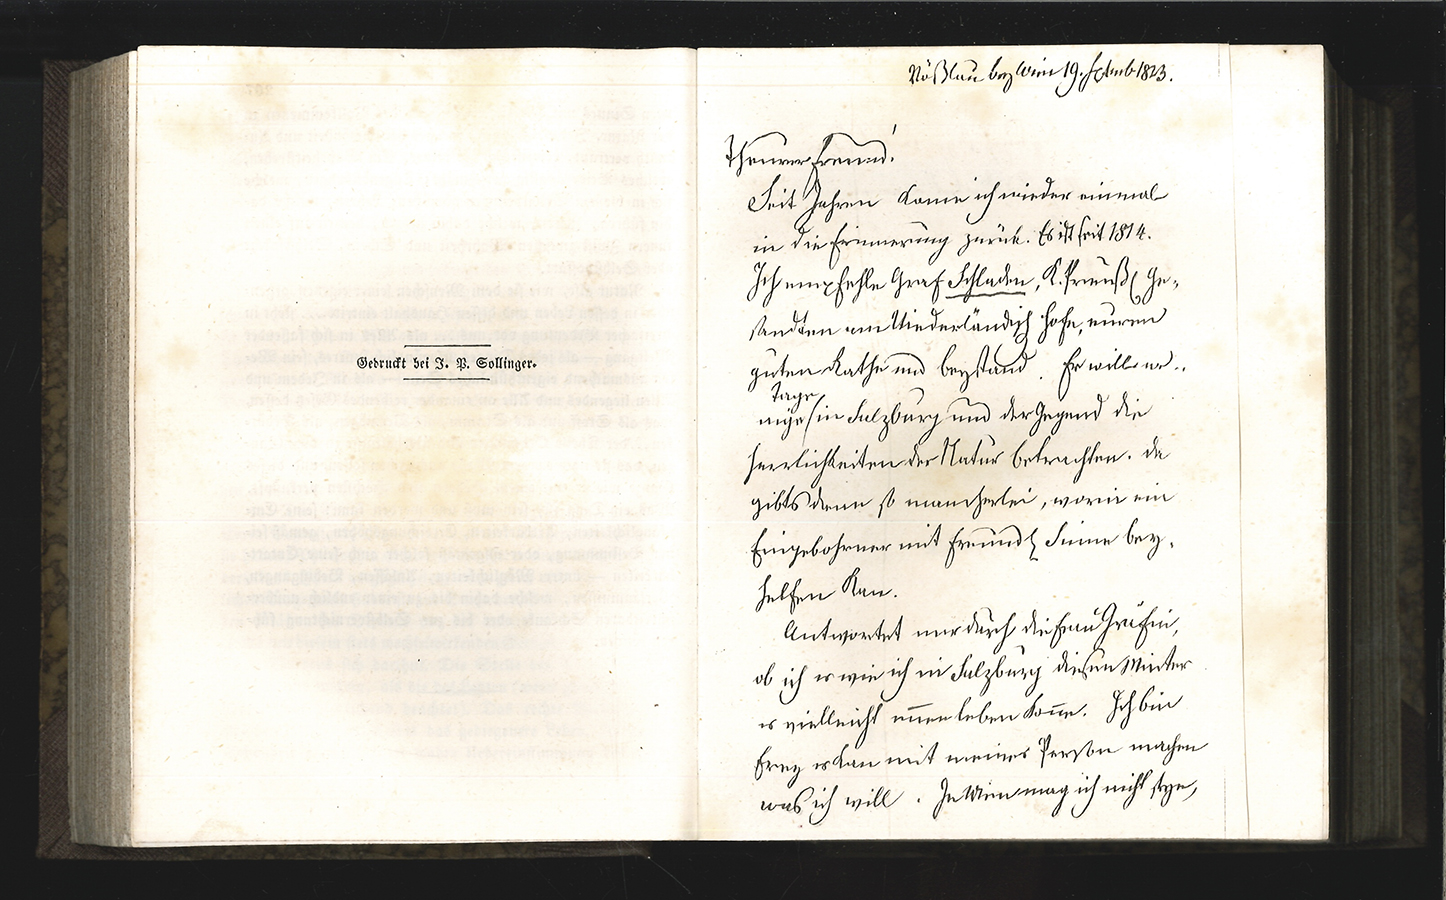 Gedruckt bei J. P. Sollinger.
Vößlau bey Wien 19. Septemb 1823.
Theurer Freund!
Seit Jahren komme ich wieder einmal
in die Erinnerung zurück. Es ist seit 1814.
Ich empfehle Graf Schladen, K. Preuß. Ge-
sandten am Niederländisch Hofe, eurem
guten Rathe und beystand. Er will
Tage
in Salzburg und der Gegend die
Herrlichkeiten der Natur betrachten. da
gibts denn so mancherlei, worin ein
Eingebohrner mit Freundes Sinne bey-
helfen kan.
Antwortet mir durch die Frau Gräfin,
ob ich wie ich in Salzburg diesen Winter
vielleicht leben könne. Ich bin
frey kan mit meiner Person machen
was ich will. In Wien mag ich nicht seyn,